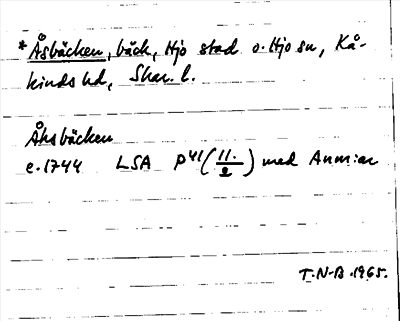 *Åsbäcken, bäck, Hjo stad o. Hjo sn, Kå-
kinds hd, Skar. l.
Åhsbäcken
e. 1744 LSA P41 (11./2) med Ann:ar
T.N-B. 1965.